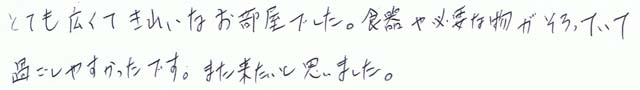 とても広くてきれいなお部屋でした。食器や必要な物がそろっていて
過ごしやすかったです。また来たいと思いました。